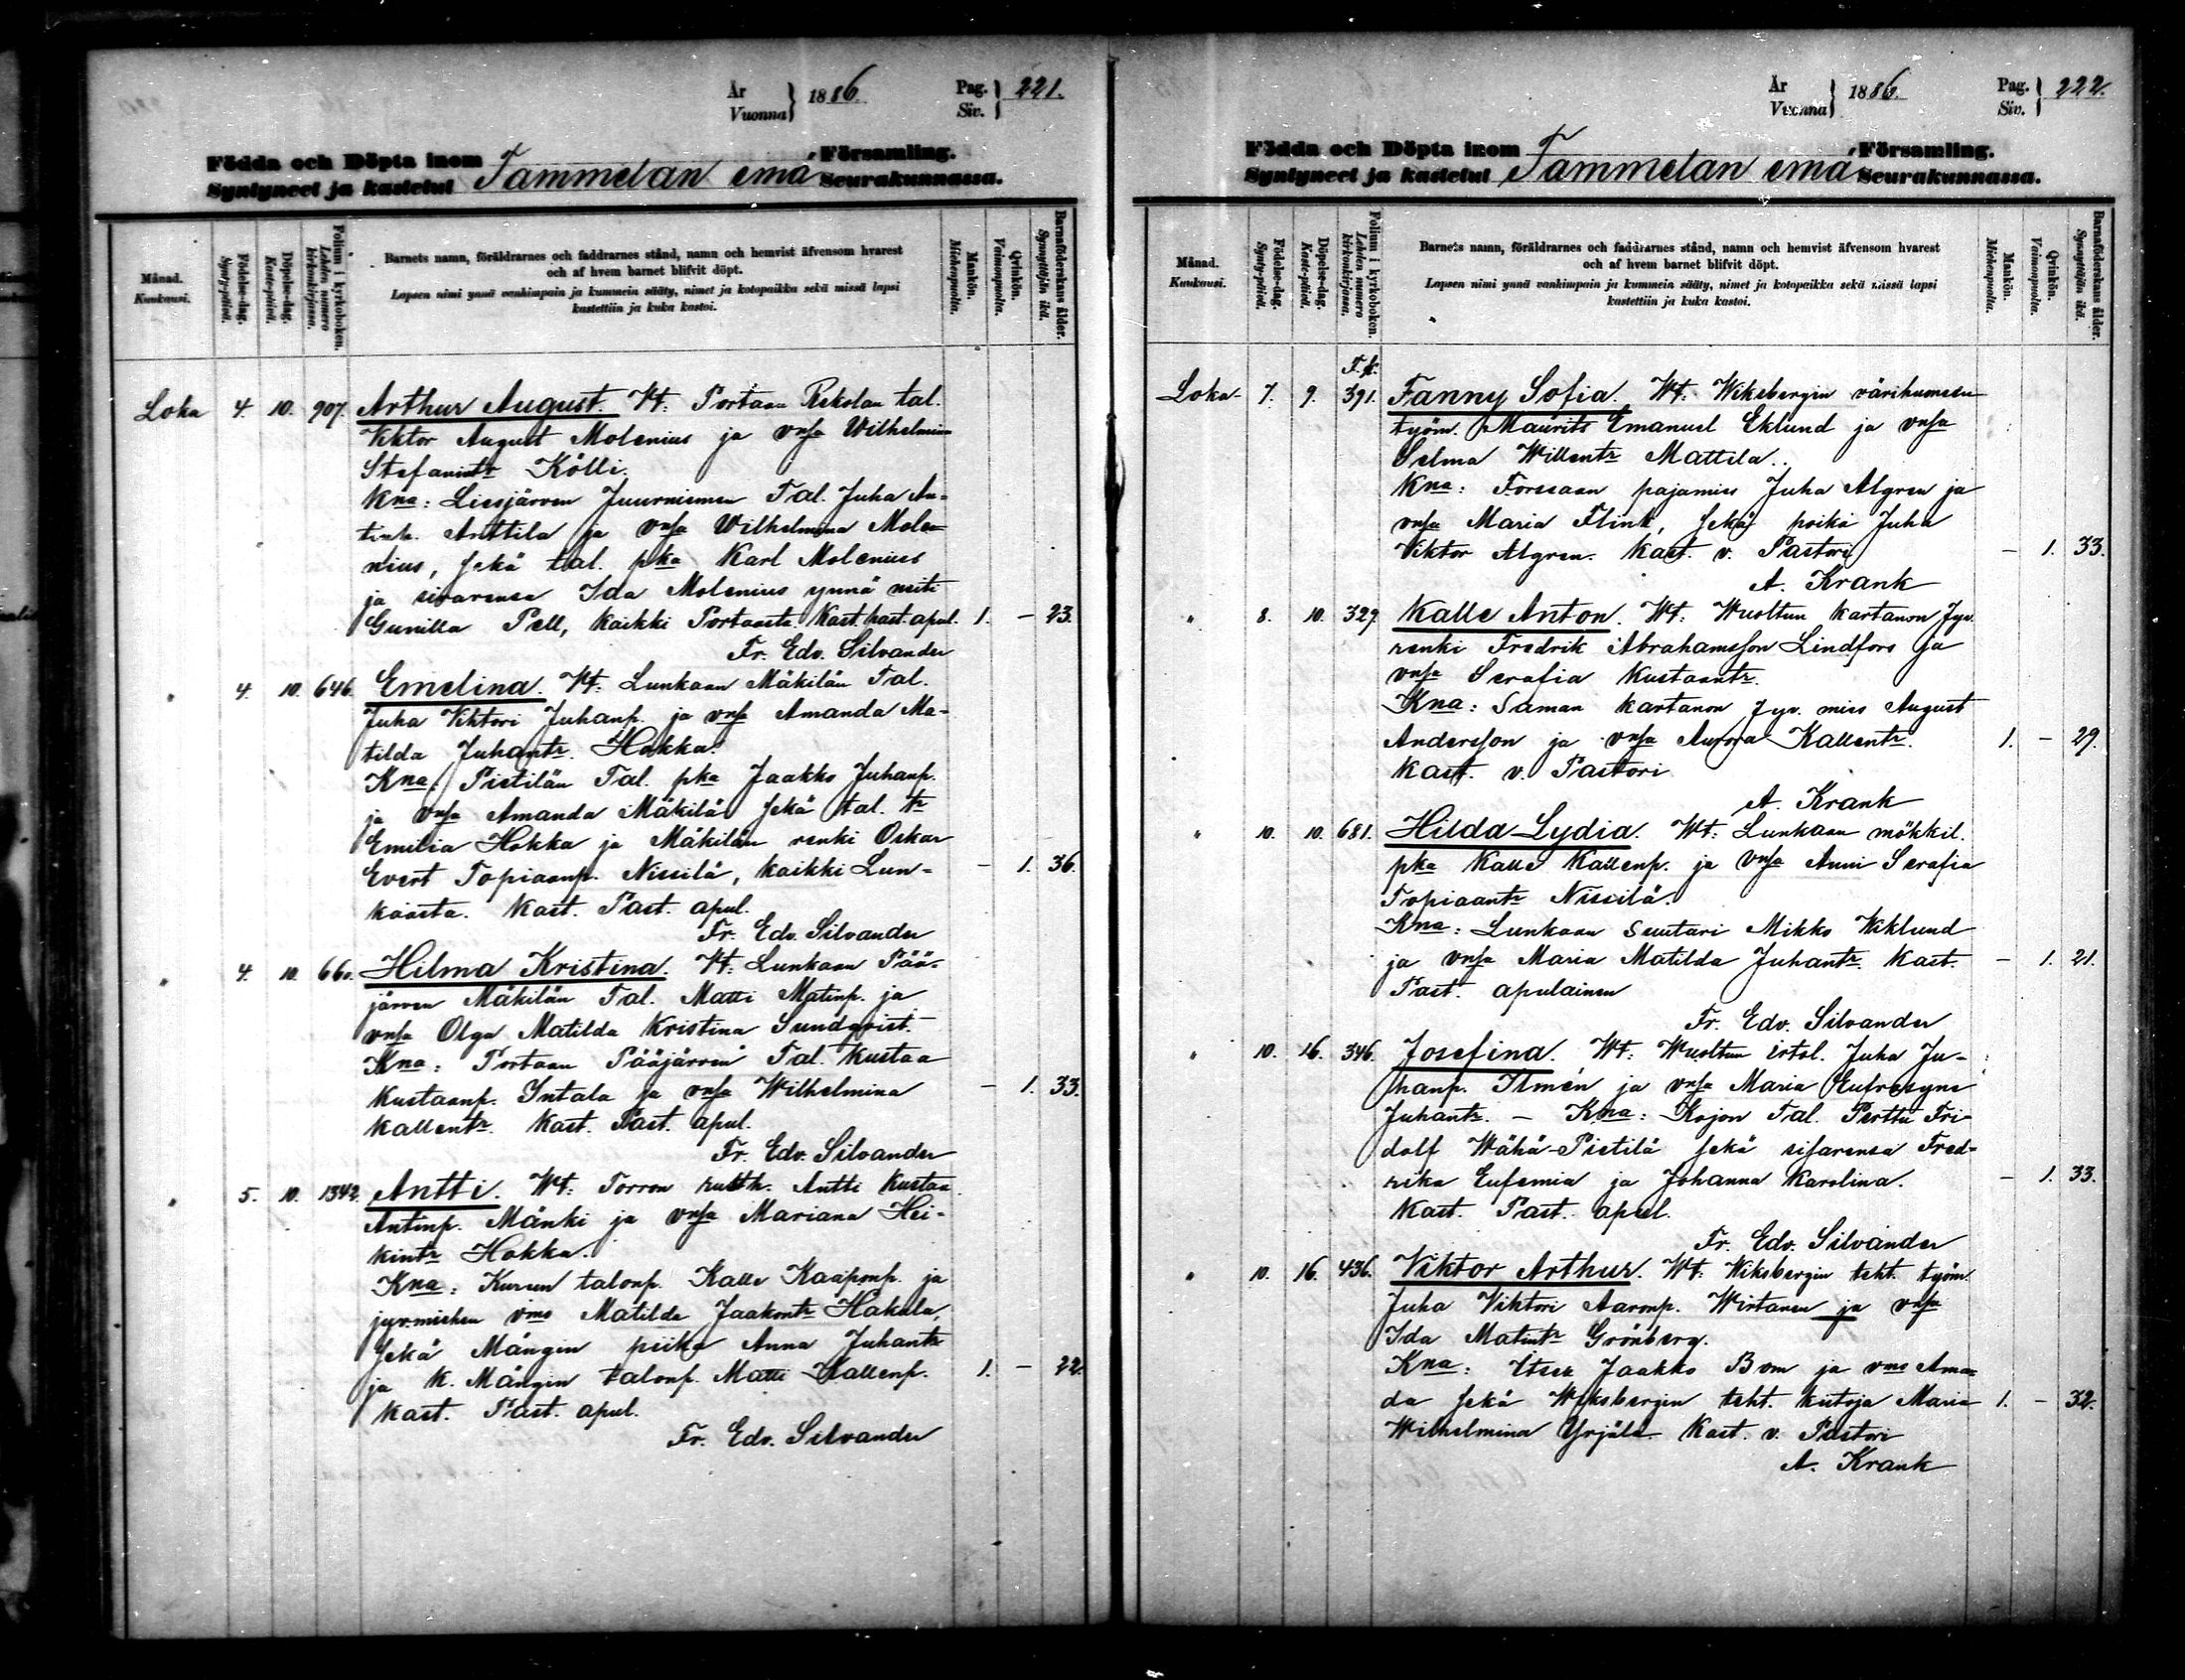 År
Vuonna } 1886. Pag.
Siv. } 221.
Födda och Döpta inom Församling.
Syntyneet ja kastetut Tammelan emä Seurakunnassa.
Månad.
Kuukausi.
Födelse-dag.
Synty-päivä.
Döpelse-dag.
Kaste-päivä.
Folium i kyrkoboken.
Lehden numero kirkonkirjassa.
Barnets namn, föräldrarnes och faddrarnes stånd, namn och hemvist äfvensom hvarest
och af hvem barnet blifvit döpt.
Lapsen nimi ynnä vanhimpain ja kummein sääty, nimet ja kotopaikka sekä missä lapsi
kastettiin ja kuka kastoi.
Mankön.
Miehenpuolta.
Qvinkön.
Vaimonpuolta.
Barnaföderskans ålder.
Synnyttäjän ikä.
Loka 4. 10. 907. Arthur August. Wt: Portaan Rekolan tal.
Viktor August Molenius ja vnsa Wilhelmina
Stefanintr Kölli.
Kna: Liesjärven Juurniemen Tal. Juha An-
tinp. Anttila ja vnsa Wilhelmina Mole-
nius, sekä tal. pka Karl Molenius
ja sisarensa Ida Molenius ynnä neiti
Gunilla Pell, kaikki Portaasta. Kast. past. apul. 1. — 23.
Fr. Edv. Silvander
" 4. 10. 646. Emelina. Wt: Lunkaan Mäkilän Tal.
Juha Viktori Juhanp. ja vnsa Amanda Ma-
tilda Juhantr. Hokka.
Kna: Pietilän Tal. pka Jaakko Juhanp.
ja vnsa Amanda Mäkilä sekä tal. tr
Emilia Hokka ja Mäkilän renki Oskar
Evert Topiaanp. Nissilä, kaikki Lun- — 1. 36.
kaasta. Kast. Past. apul.
Fr. Edv. Silvander
" 4. 10. 660. Hilma Kristina. Wt: Lunkaan Pää-
järven Mäkilän Tal. Matti Matinp. ja
vnsa Olga Matilda Kristina Sundqvist.
Kna: Portaan Pääjärven Tal. Kustaa
Kustaanp. Intala ja vnsa Wilhelmina — 1. 33.
Kallentr. Kast. Past. apul.
Fr. Edv. Silvander
" 5. 10. 1342. Antti. Wt: Torron Antti Kustaa
Antinp. Mänki ja vnsa Mariana Hei-
kintr Hokka.
Kna: Kurun talonp. Kalle Kaaponp. ja
jyv.miehen vmo Matilda Jaakontr Hakala,
sekä Mängin piika Anna Juhantr
ja K. Mängin talonp. Matti Kallenp. 1. — 22.
Kast. Past. apul.
Fr. Edv. Silvander
År
Vuonna } 1886. Pag.
Siv. } 222.
Födda och Döpta inom Församling.
Syntyneet ja kastetut Tammelan emä Seurakunnassa.
Månad.
Kuukausi.
Födelse-dag.
Synty-päivä.
Döpelse-dag.
Kaste-päivä.
Folium i kyrkoboken.
Lehden numero kirkonkirjassa.
Barnets namn, föräldrarnes och faddrarnes stånd, namn och hemvist äfvensom hvarest
och af hvem barnet blifvit döpt.
Lapsen nimi ynnä vanhimpain ja kummein sääty, nimet ja kotopaikka sekä missä lapsi
kastettiin ja kuka kastoi.
Mankön.
Miehenpuolta.
Qvinkön.
Vaimonpuolta.
Barnaföderskans ålder.
Synnyttäjän ikä.
F. k.
Loka- 7. 9. 391. Fanny Sofia. Wt: Wiksbergin värihuoneen
työm. Maurits Emanuel Eklund ja vnsa
Selma Willentr Mattila.
Kna: Forssaan pajamies Juha Algren ja
vnsa Maria Flink, sekä poika Juha
Viktor Algren. Kast. v. Pastori — 1. 33.
A. Krank
" 8. 10. 329. Kalle Anton. Wt: Wuoltun kartanon Jyv.
renki Fredrik Abrahamsson Lindfors ja
vnsa Serafia Kustaantr.
Kna: Saman kartanon Jyv. mies August
Andersson ja vnsa Aurora Kallentr. 1. — 29.
Kast. v. Pastori
A. Krank
" 10. 10. 681. Hilda Lydia. Wt: Lunkaan mökkil.
pka Kalle Kallenp. ja vnsa Anni Serafia
Topiaantr Nissilä.
Kna: Lunkaan Suutari Mikko Wiklund
ja vnsa Maria Matilda Juhantr. Kast. — 1. 21.
Past. apulainen
Fr. Edv. Silvander
" 10. 16. 346. Josefina. Wt: Wuoltun irtol. Juha Ju-
hanp. Ilmén ja vnsa Maria Eufrosyne
Juhantr. — Kna: Kojon Tal. Perttu Fri-
dolf Wähä-Pietilä sekä sisarensa Fred-
rika Eufemia ja Johanna Karolina. — 1. 33.
Kast. Past. apul.
Fr. Edv. Silvander
" 10. 16. 436. Viktor Arthur. Wt: Wiksbergin teht. työm.
Juha Viktori Aaronp. Wirtanen ja vnsa
Ida Matintr Grönberg.
Kna: Itsell Jaakko Bom ja vmo Aman-
da sekä Wiksbergin teht. kutoja Maria 1. — 32.
Wilhelmina Yrjälä. Kast. v. Pastori
A. Krank